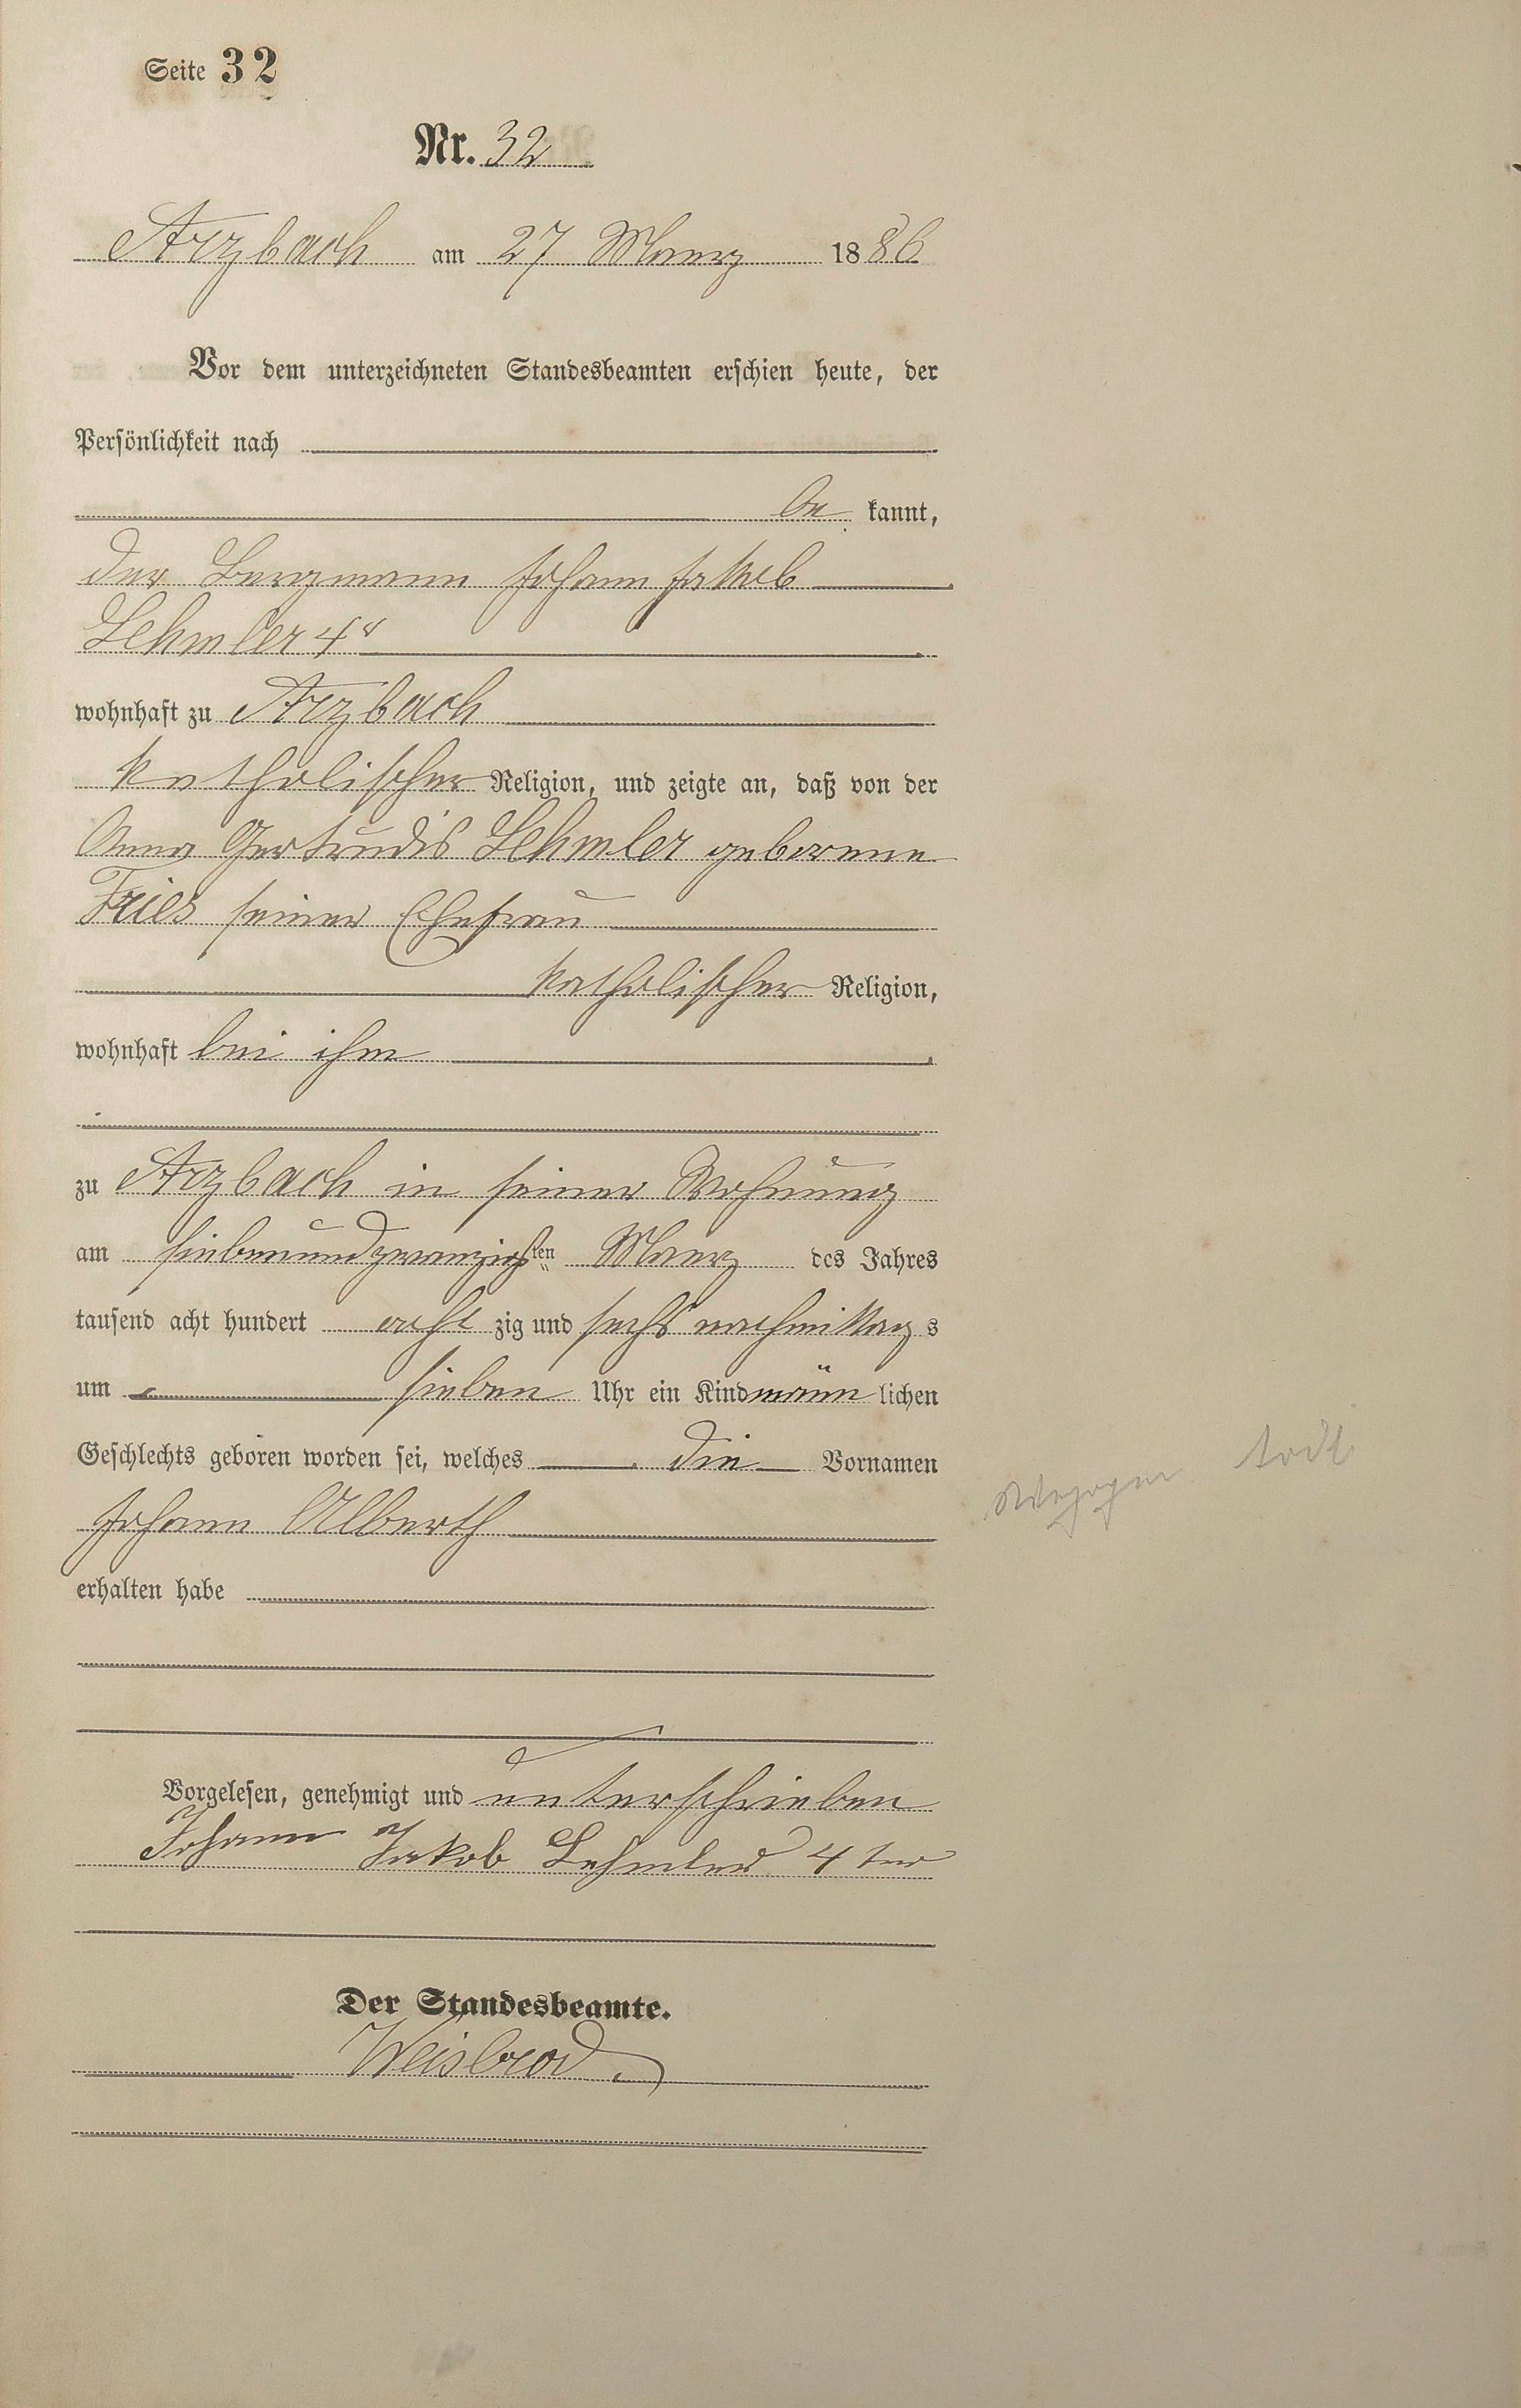 Seite 32
Nr. 32
Arzbach am 27 Maerz 1886
Vor dem unterzeichneten Standesbeamten erschien heute, der
Persönlichkeit nach
be kannt,
der Bergmann Johann Jakob
Lehmler 4r
wohnhaft zu Arzbach
katholischer Religion, und zeigte an, daß von der
Anna Gertrudis Lehmler geborene
Fries seiner Ehefrau
katholischer Religion,
wohnhaft bei ihm
zu Arzbach in seiner Wohnung
am siebenundzwanzigsten Maerz des Jahres
tausend acht hundert acht zig und sechs nachmittag s
um sieben Uhr ein Kind männ lichen
Geschlechts geboren worden sei, welches die Vornamen
Johann Alberth
erhalten habe
Vorgelesen, genehmigt und unterschrieben
Johann Jakob Lehmler 4 ter
Der Standesbeamte.
Weisbrod
todt